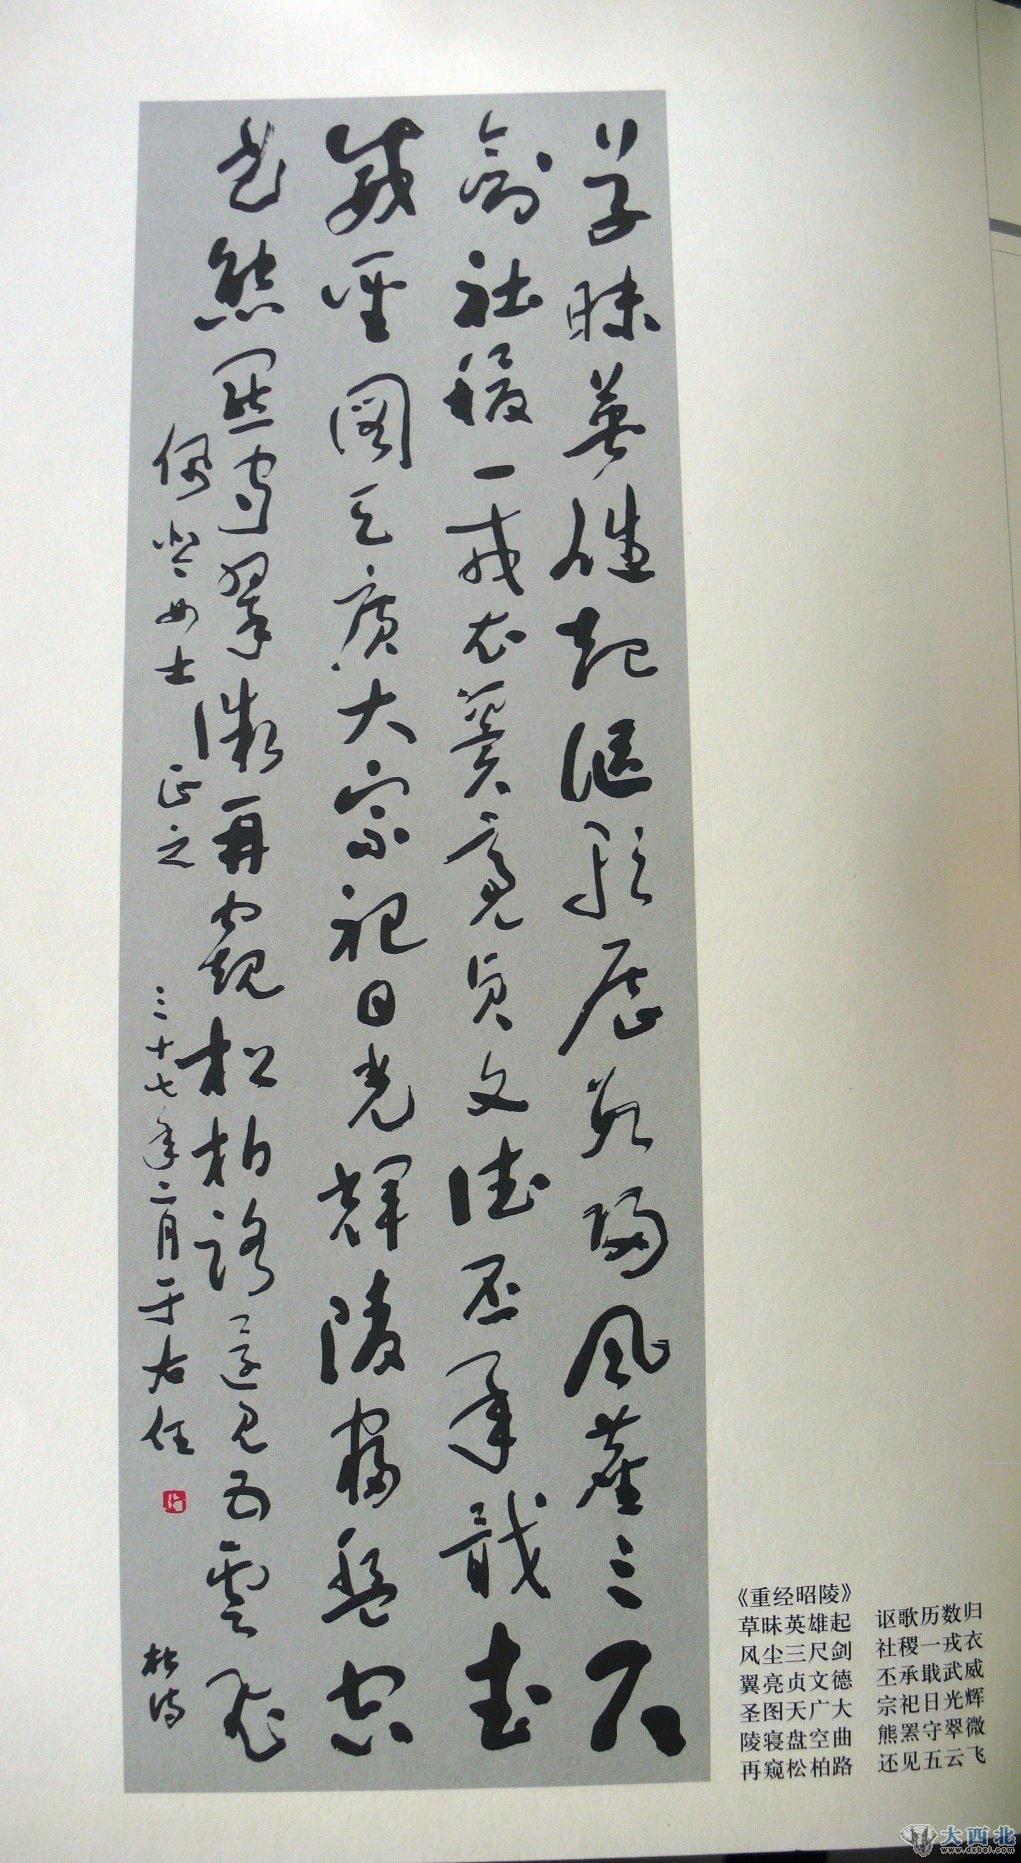 草昧英雄起謳歌歷數歸風塵三尺
劍社稷一戎衣翼亮貞文德丕承戢武
威聖圖天廣大宗祀日光輝陵寢盤空
曲熊羆守翠微再窺松柏路還見五雲飛
杜詩
佩女士正之
三十七年二月于右任
《重经昭陵》
草昧英雄起 讴歌历数归
风尘三尺剑 社稷一戎衣
翼亮贞文德 丕承戢武威
圣图天广大 宗祀日光辉
陵寝盘空曲 熊罴守翠微
再窥松柏路 还见五云飞
大西北
www.dxbei.com